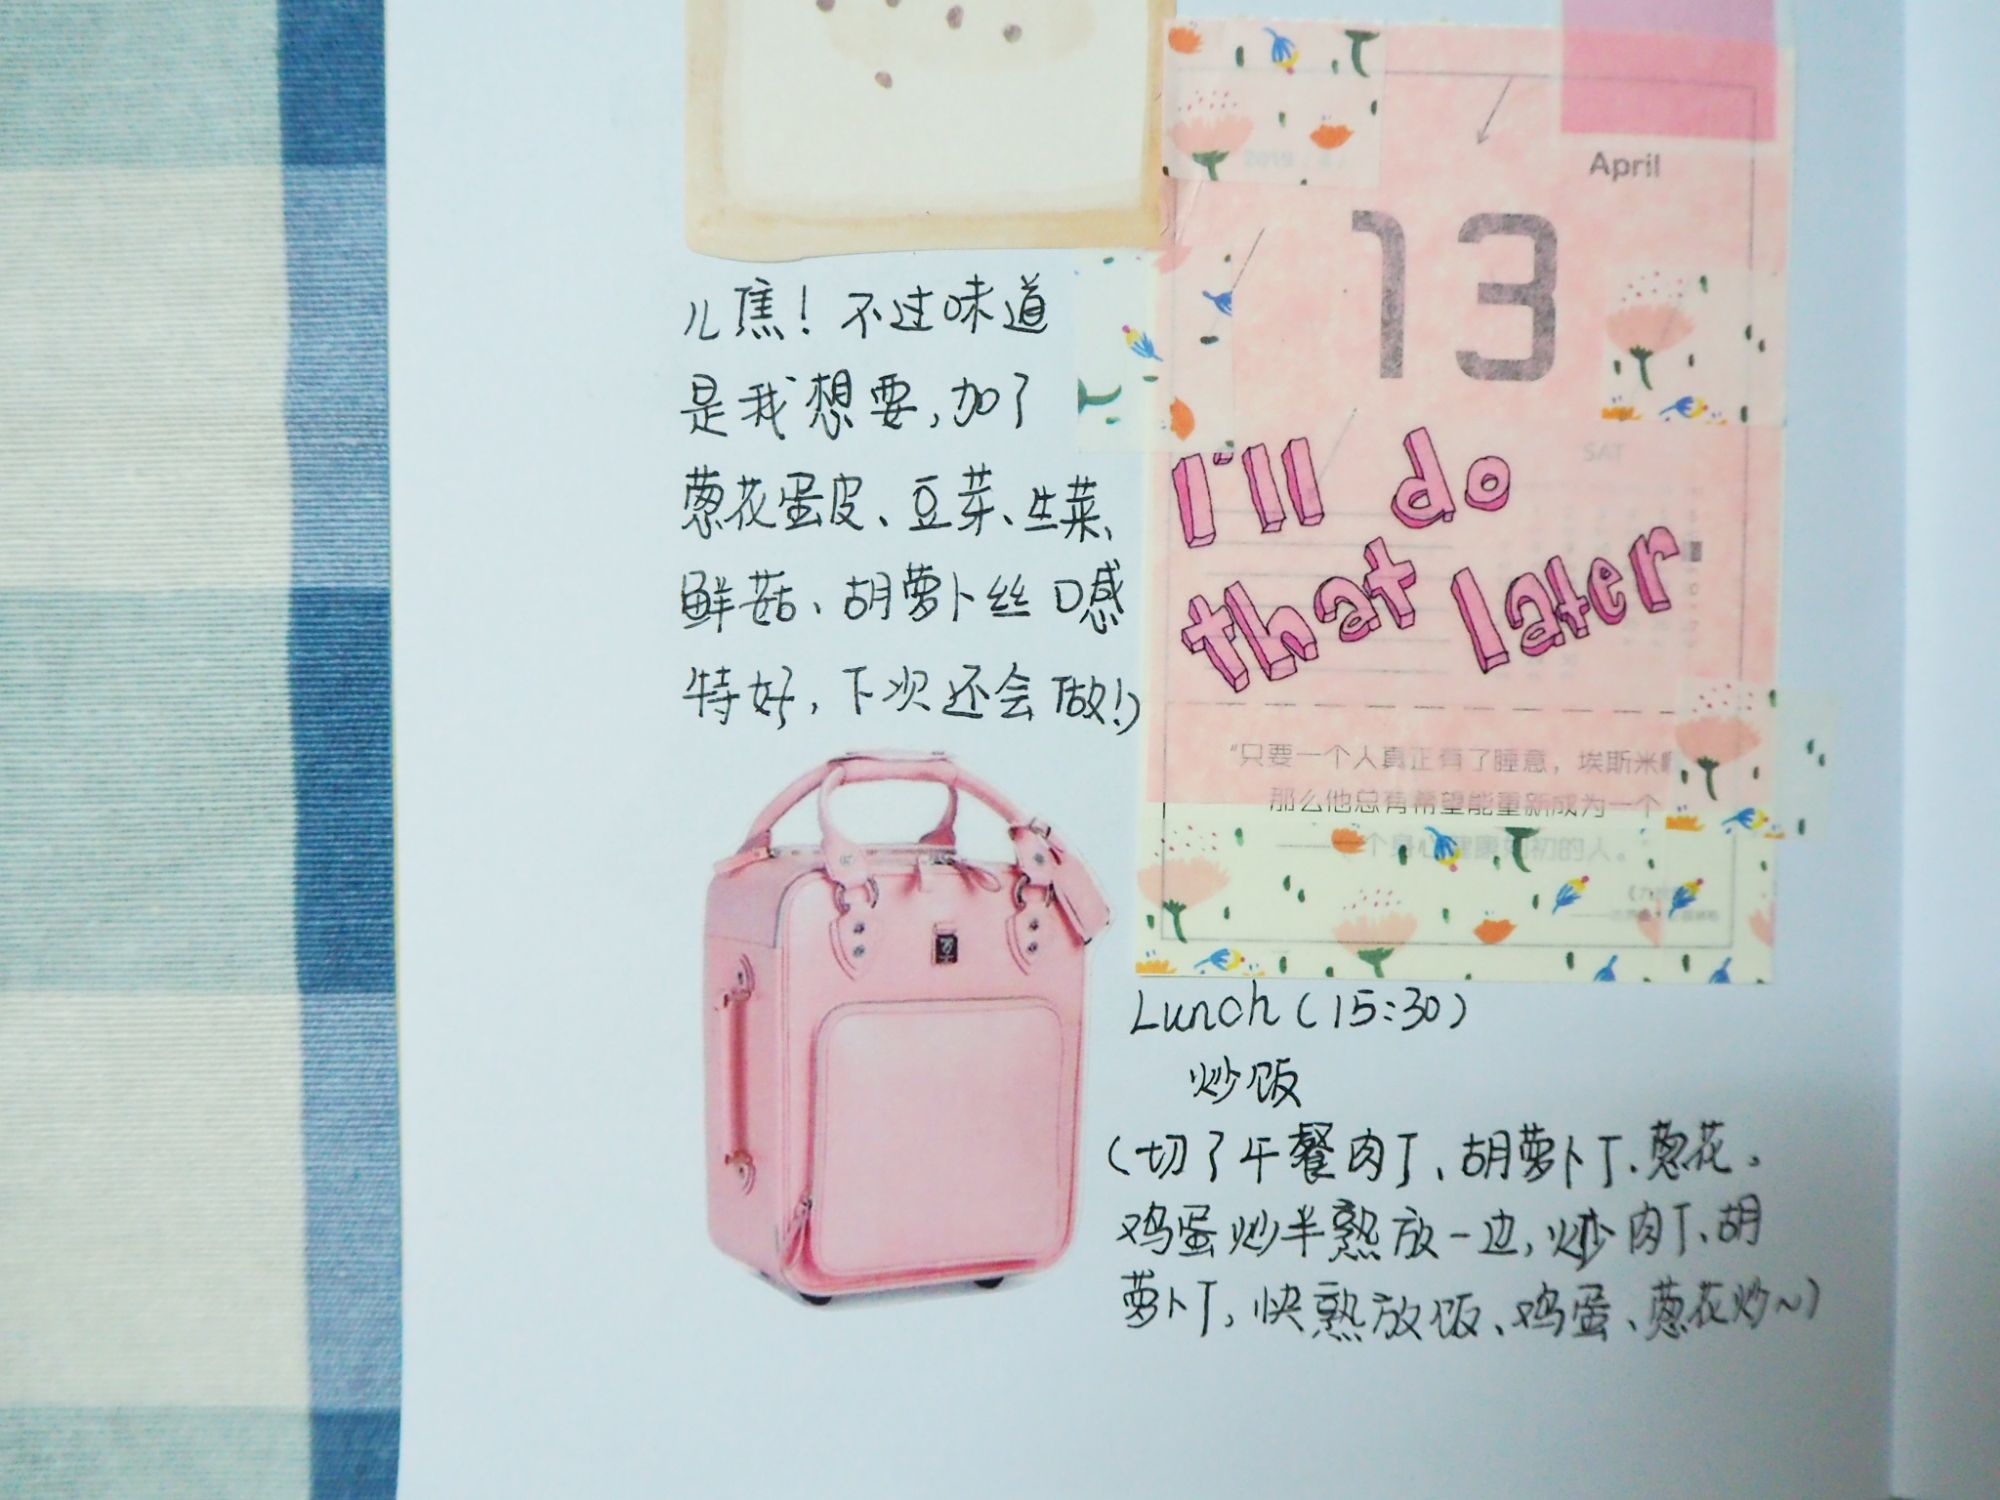 儿焦！不过味道
是我想要，加了
葱花蛋皮、豆芽、生菜、
鲜菇、胡萝卜丝口感
特好，下次还会做！）
April
13
SAT
I'll do
that later
“只要一个人真正有了睡意，埃斯米
那么他总有希望能重新成为一个
Lunch（15:30）
炒饭
（切了午餐肉丁、胡萝卜丁、葱花。
鸡蛋炒半熟放一边，炒肉丁、胡
萝卜丁，快熟放饭、鸡蛋、葱花炒~）